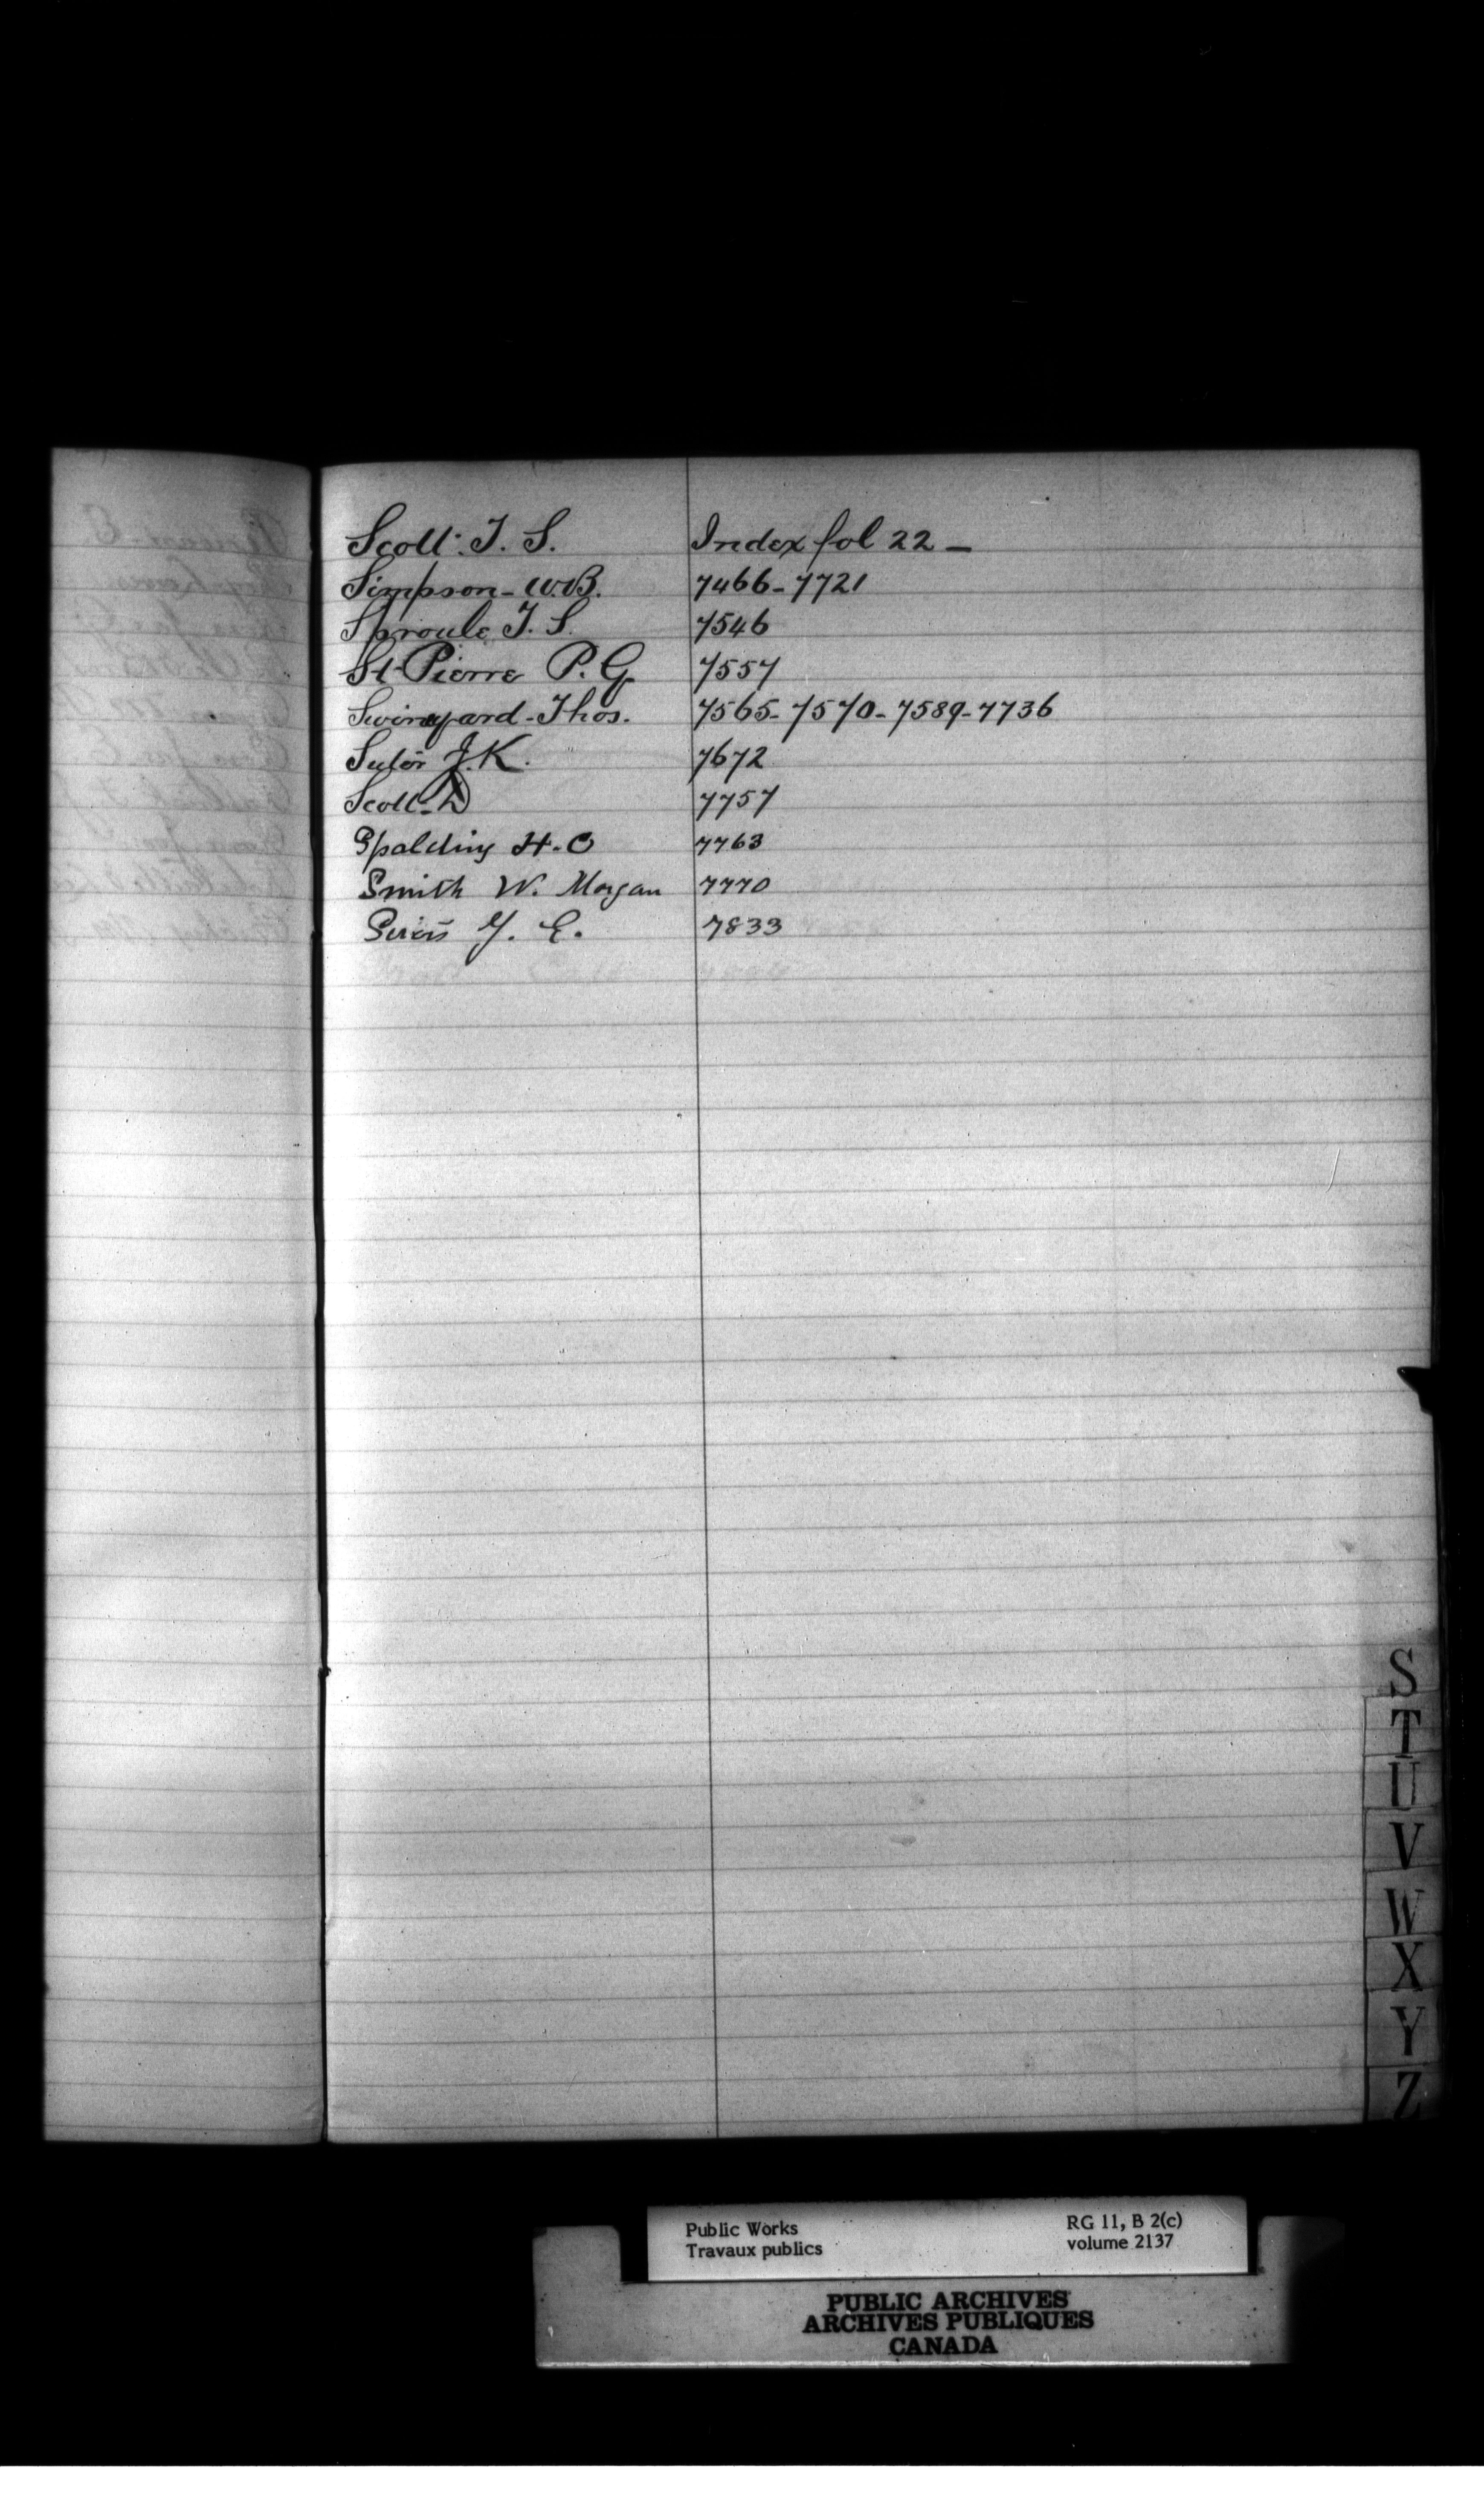 Scott. T. S. Index fol 22 —
Simpson - W.B. 7466 - 7721
Sproule T. S. 7546
St Pierre P. G 7557
Swinyard - Thos. 7565 - 7570 - 7589 - 7736
Sutor J. K. 7672
Scott - D 7757
Spalding H. O 7763
Smith W. Morgan 7770
7833
S
T
U
V
W
X
Y
Z
Public Works RG 11, B 2(c)
Travaux publics volume 2137
PUBLIC ARCHIVES
ARCHIVES PUBLIQUES
CANADA